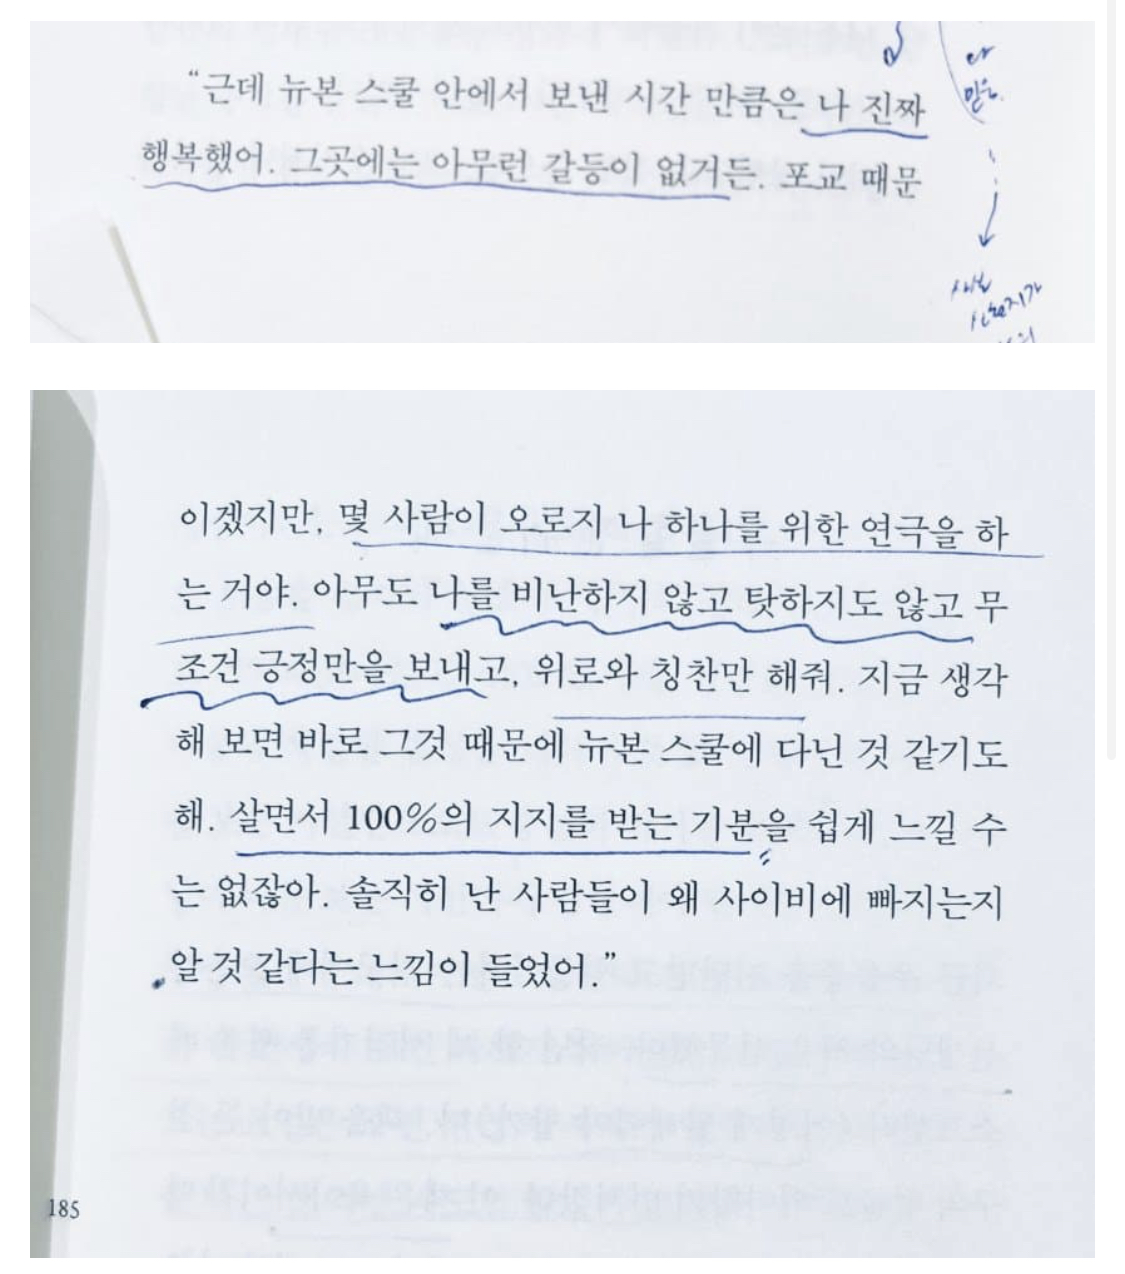 “근데 뉴본 스쿨 안에서 보낸 시간 만큼은 나 진짜
행복했어. 그곳에는 아무런 갈등이 없거든. 포교 때문
이겠지만, 몇 사람이 오로지 나 하나를 위한 연극을 하
는 거야. 아무도 나를 비난하지 않고 탓하지도 않고 무
조건 긍정만을 보내고, 위로와 칭찬만 해줘. 지금 생각
해 보면 바로 그것 때문에 뉴본 스쿨에 다닌 것 같기도
해. 살면서 100%의 지지를 받는 기분을 쉽게 느낄 수
는 없잖아. 솔직히 난 사람들이 왜 사이비에 빠지는지
알 것 같다는 느낌이 들었어.”
185